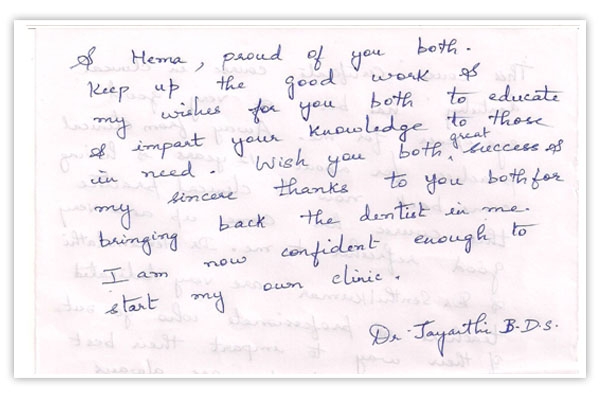 & Hema, proud of you both.
Keep up the good work &
my wishes for you both to educate
& impart your knowledge to those
in need. Wish you both great success &
my sincere thanks to you both for
bringing back the dentist in me.
I am now confident enough to
start my own clinic.
Dr. Jayanthi B.D.S.